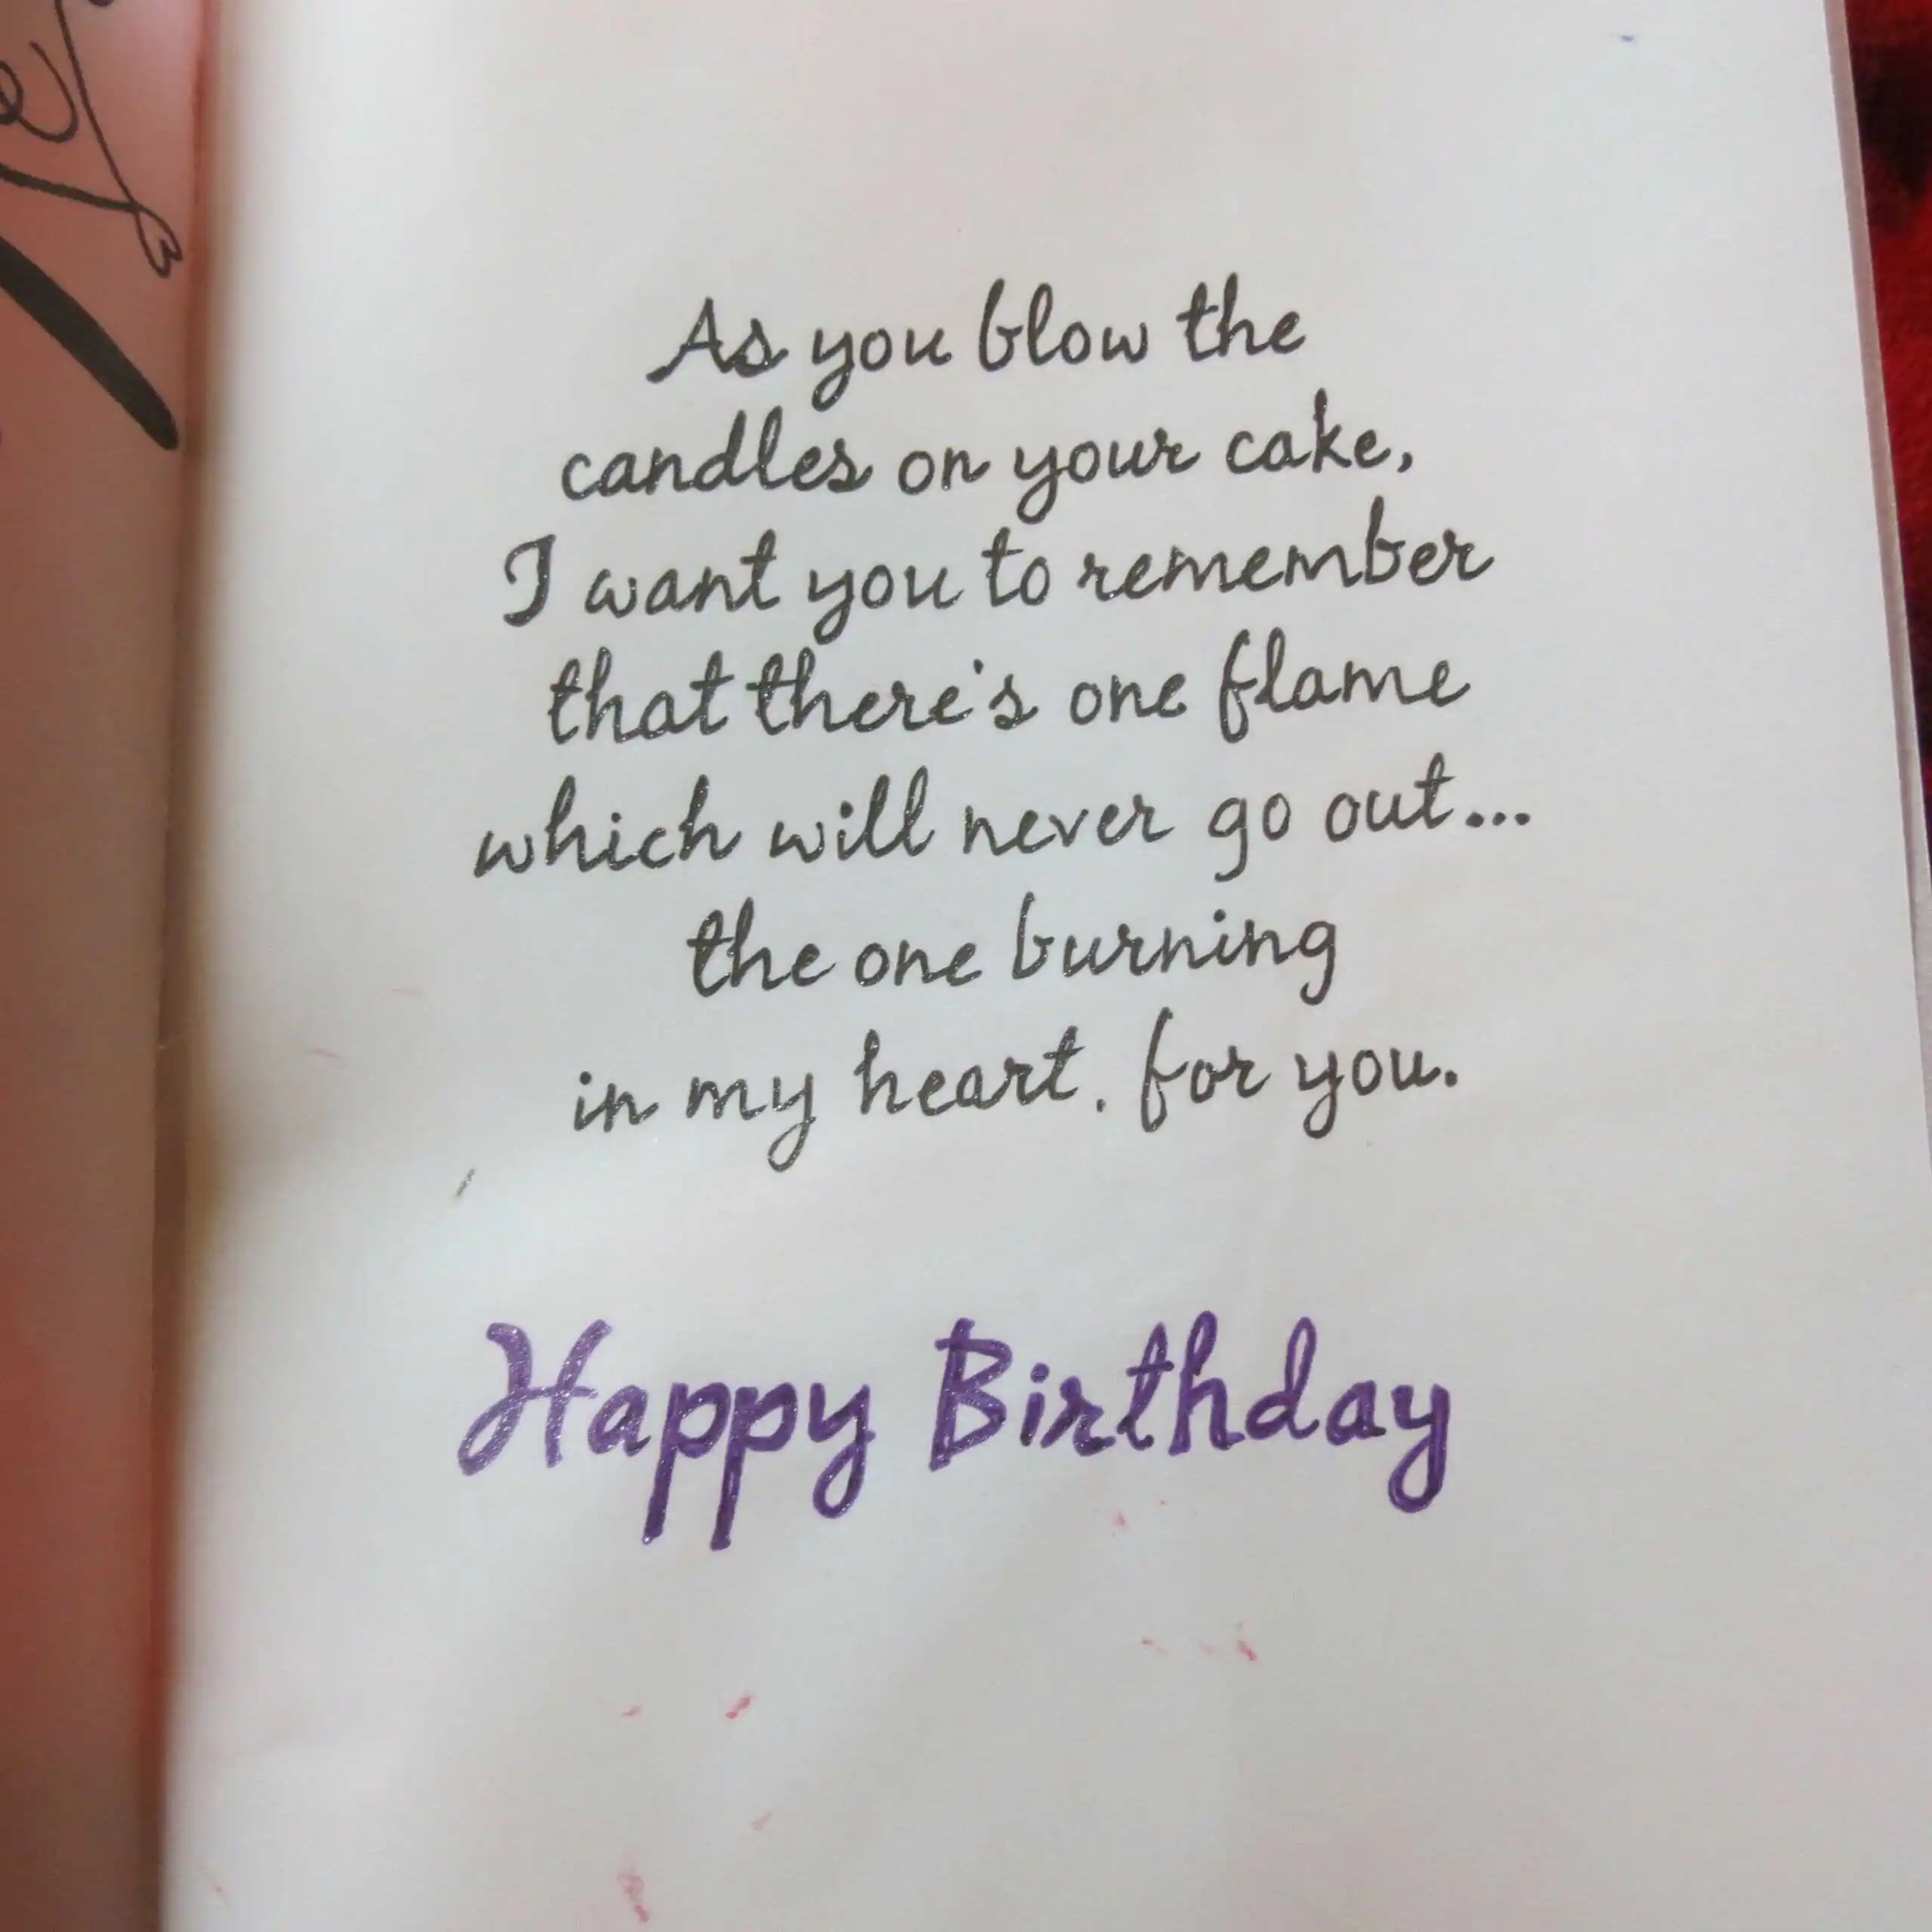 As you blow the
candles on your cake,
I want you to remember
that there's one flame
which will never go out...
the one burning
in my heart, for you.
Happy Birthday